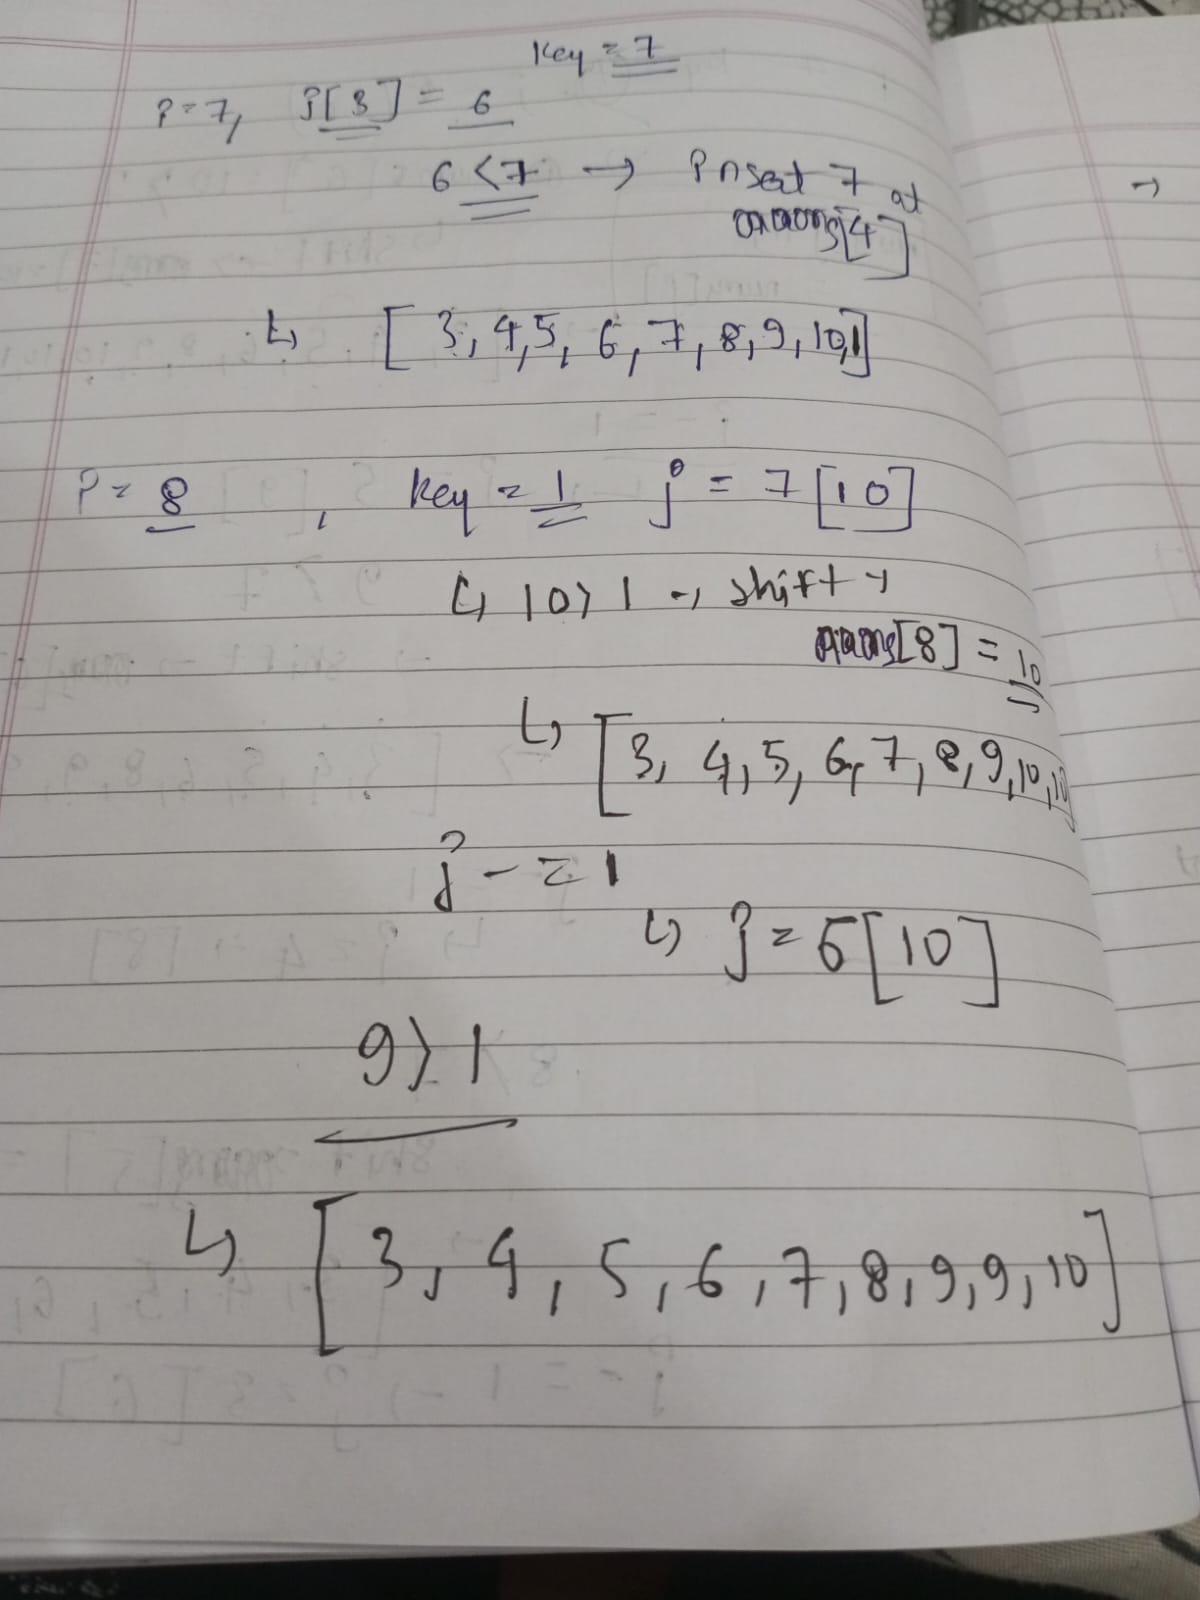 Key = 7
i = 7, j[3] = 6
6 < 7 → insert 7 at
nums[4]
↳ [3, 4, 5, 6, 7, 8, 9, 10, 1]
i = 8, key = 1 j = 7 [10]
↳ 10 > 1 → shift →
nums[8] = 10
↳ [3, 4, 5, 6, 7, 8, 9, 10, 10]
j -= 1
↳ j = 6 [10]
9 > 1
↳ [3, 4, 5, 6, 7, 8, 9, 9, 10]